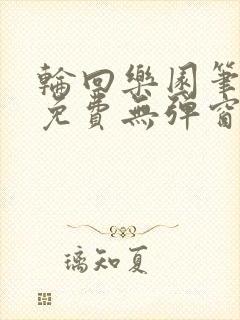 輪回樂園筆
免費無彈窗
璃知夏